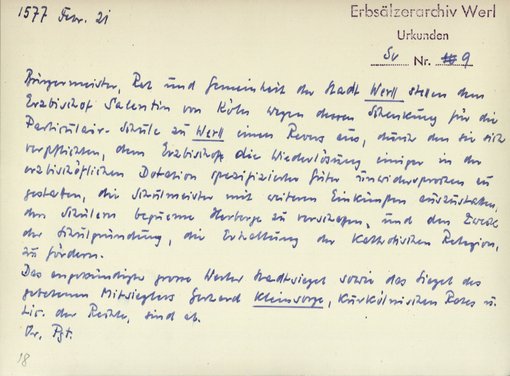 1577 Febr. 21
Erbsälzerarchiv Werl
Urkunden
Sv Nr. 9
Bürgermeister, Rat und Gemeinheit der Stadt Werll stellen dem
Erzbischof Salentin von Köln wegen dessen Schenkung für die
Particulair-Schule zu Werll einen Revers aus, durch den sie sich
verpflichten, dem Erzbischofe die Wiederlösung einiger in der
erzbischöflichen Dotation spezifizierter Güter unwidersprochen zu
gestatten, die Schulmeister mit weiteren Einkünften auszustatten,
den Schülern bequeme Herberge zu verschaffen, und den Zweck
der Schulgründung, die Erhaltung der Katholischen Religion,
zu fördern.
Das angekündigte grosse Werler Stadtsiegel sowie das Siegel des
gebetenen Mitsieglers Gerhard Kleinsorge, Kurkölnischen Rates u.
Lic. der Rechte, sind ab.
Or. Pgt.
18